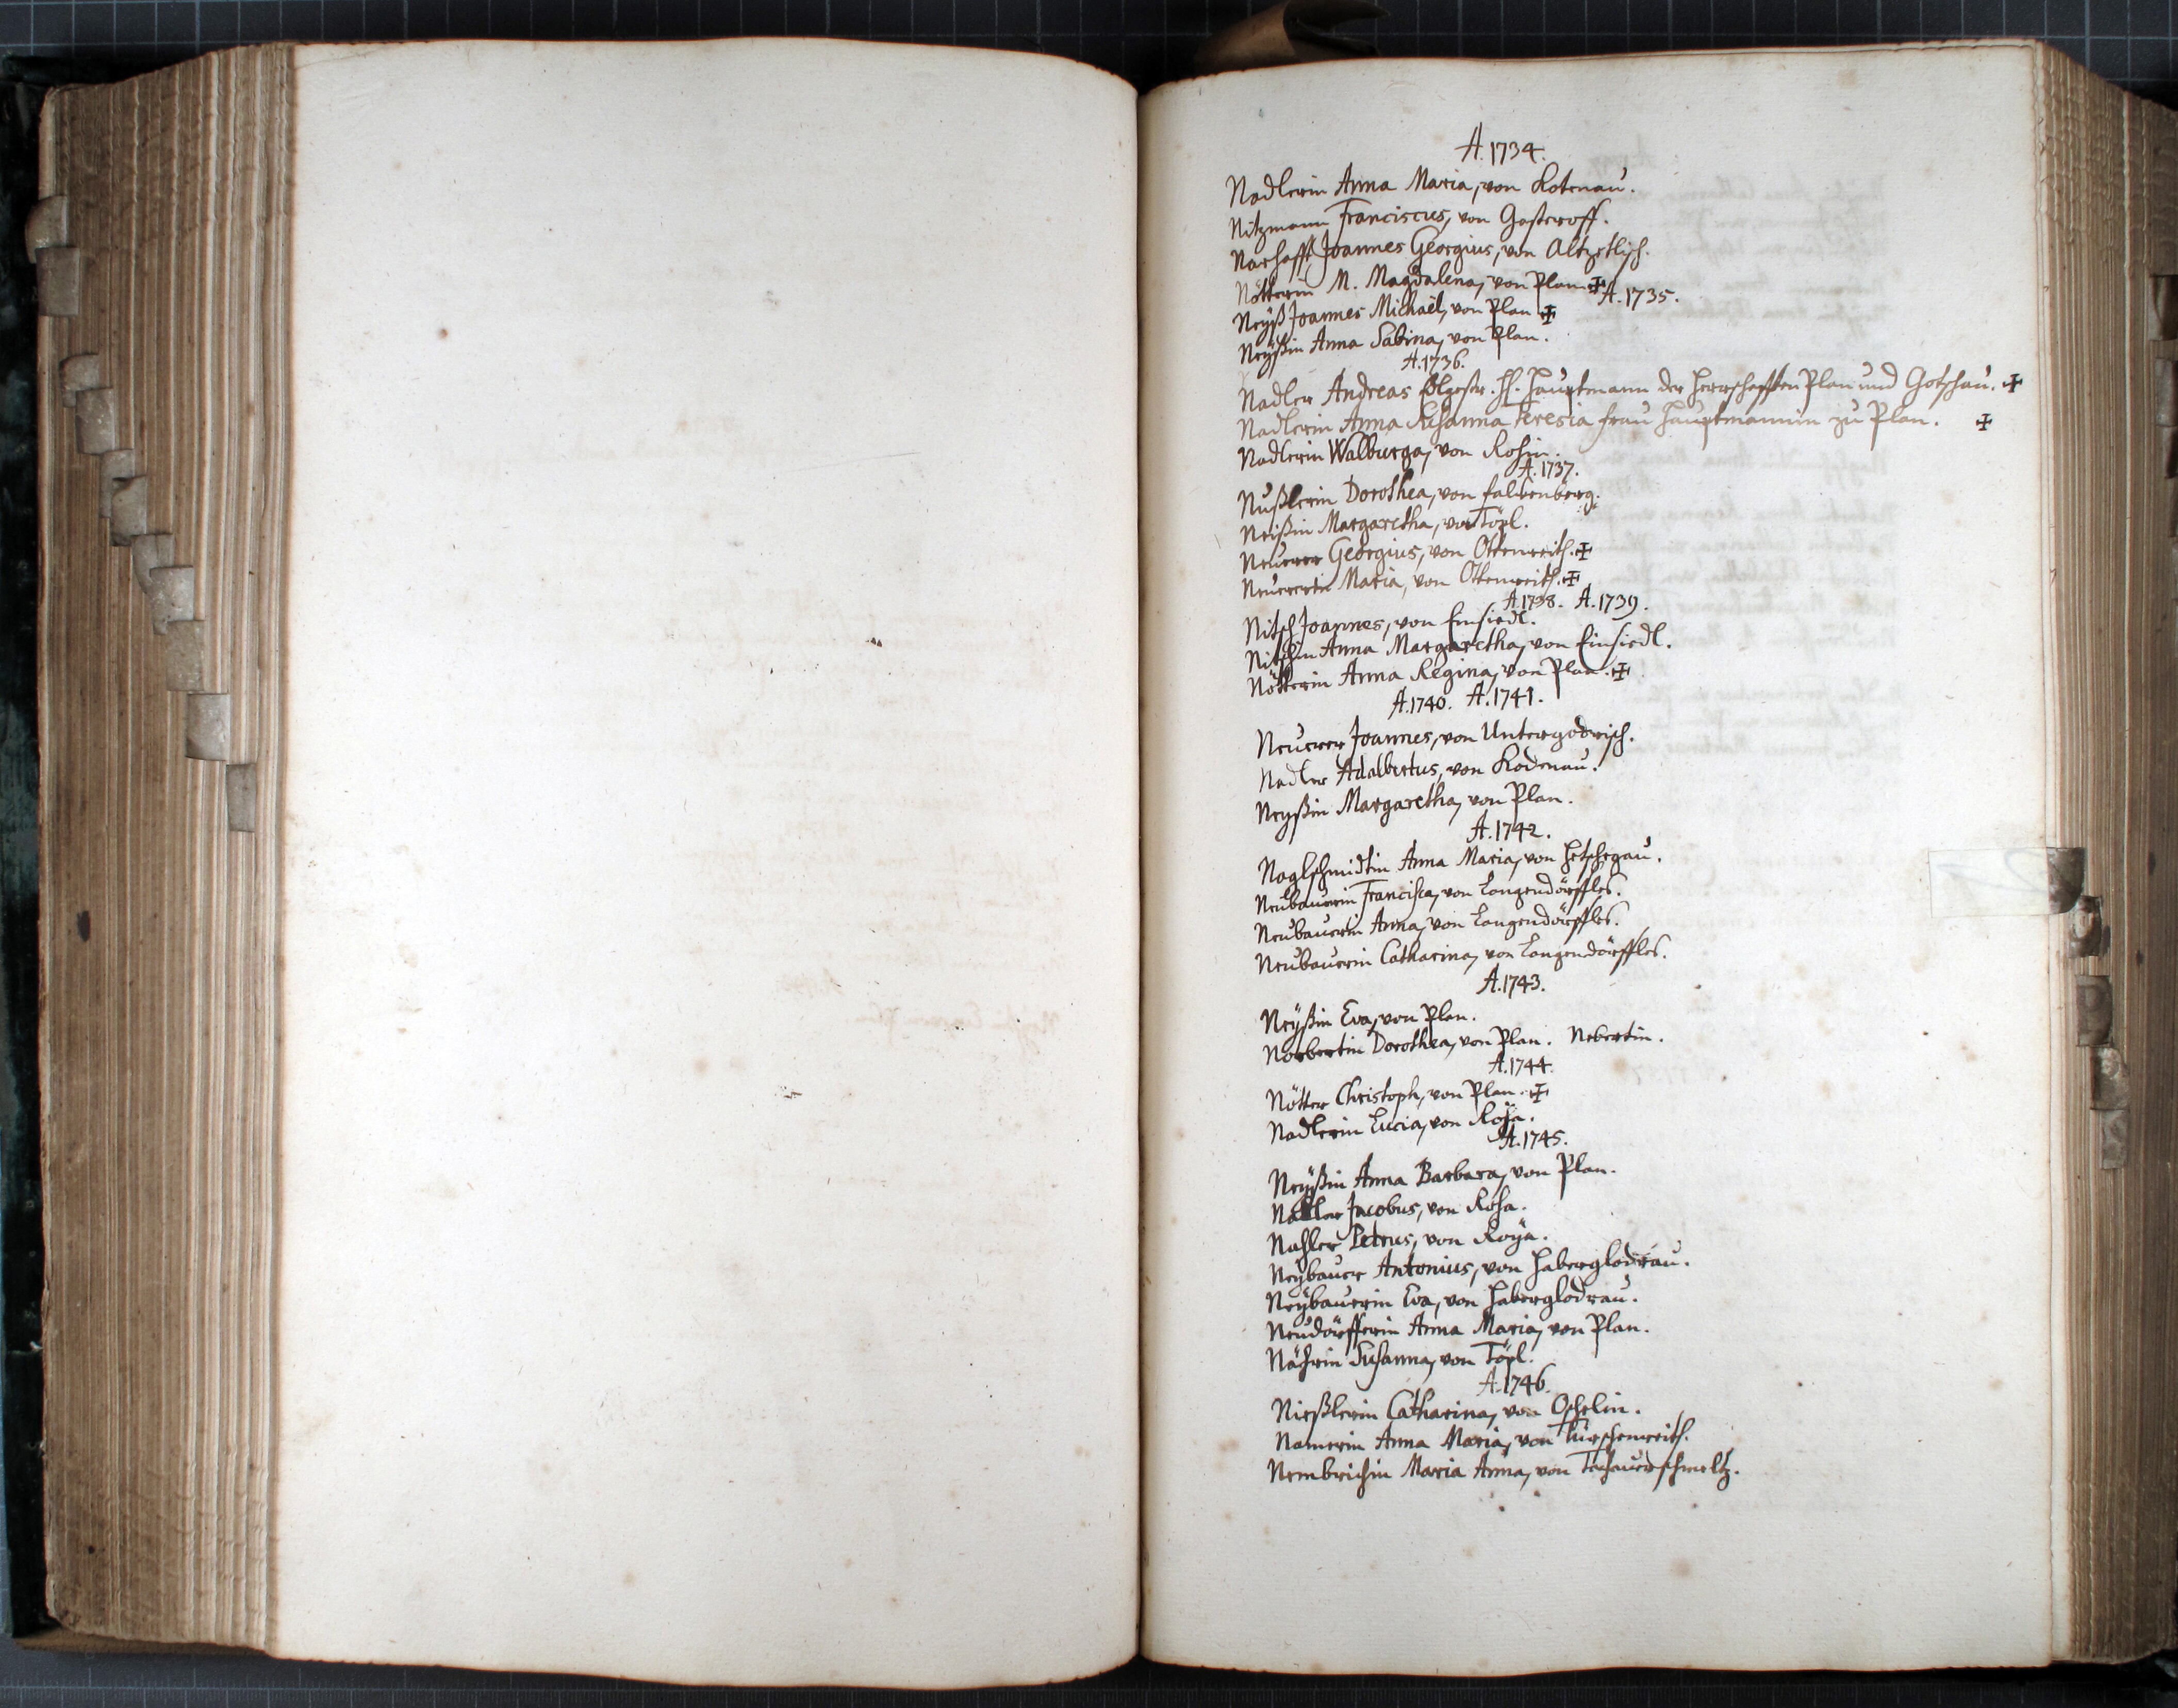 A. 1734.
Nadlerin Anna Maria, von Kotenau.
Nitzmann Franciscus, von Gosteroff.
Narhafft Joannes Georgius, von Altzetlisch.
Nötterin M. Magdalena, von Plan ✠ A. 1735.
Neyß Joannes Michaël, von Plan ✠
Neyßin Anna Sabina, von Plan.
A. 1736.
Nadler Andreas H. Hauptmann der Herrschafften Plan und Gotschau. ✠
Nadlerin Anna Susanna Teresia frau Hauptmannin zu Plan. ✠
Nadlerin Walburga, von Roßin.
A. 1737.
Nußlerin Dorothea, von falkenberg.
Neißin Margaretha, von Töpl.
Neuerer Georgius, von Ottenreith. ✠
Neuererin Maria, von Ottenreith. ✠
A. 1738. A. 1739.
Nitsch Joannes, von Einsiedl.
Nitschin Anna Margaretha, von Einsiedl.
Nötterin Anna Regina, von Plan. ✠
A. 1740. A. 1741.
Neuerer Joannes, von Untergodrisch.
Nadler Adalbertus, von Kodenau.
Neyßin Margaretha, von Plan.
A. 1742.
Noglschmidtin Anna Maria, von Hetschigau.
Neubauerin Francisca, von Langendörffles.
Neubauerin Anna, von Langendörffles.
Neubauerin Catharina, von Langendörffles.
A. 1743.
Neyßin Eva, von Plan.
Norbertin Dorothea, von Plan. Nebertin.
A. 1744.
Nötter Christoph, von Plan. ✠
Nadlerin Lucia, von Roja.
A. 1745.
Neyßin Anna Barbara, von Plan.
Jacobus, von Roha.
Nahler Petrus, von Roÿa.
Neybauer Antonius, von Haberglodrau.
Neybauerin Eva, von Haberglodrau.
Neudörfferin Anna Maria, von Plan.
Nährin Susanna, von Töpl.
A. 1746.
Nießlerin Catharina, von Oschelin.
Namerin Anna Maria, von Türschenreith.
Nembrichin Maria Anna, von